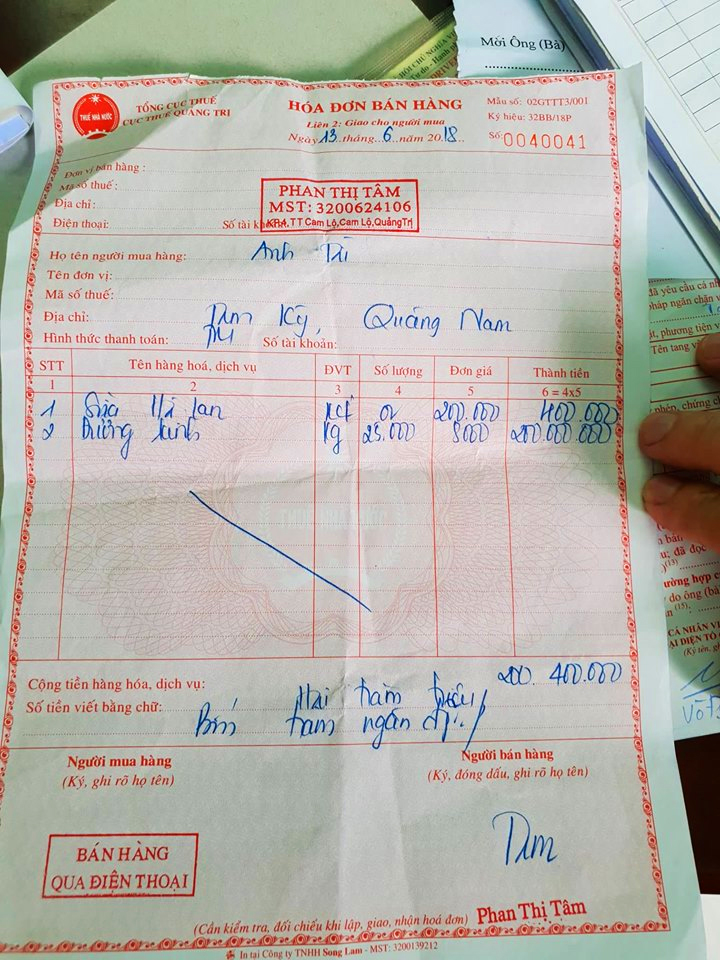 Mời Ông (Bà)
TỔNG CỤC THUẾ
CỤC THUẾ QUẢNG TRỊ
THUẾ NHÀ NƯỚC
HÓA ĐƠN BÁN HÀNG
Liên 2: Giao cho người mua
Ngày 13 tháng 6 năm 2018
Mẫu số: 02GTTT3/001
Ký hiệu: 32BB/18P
Số: 0040041
Đơn vị bán hàng :
Mã số thuế:
Địa chỉ:
Điện thoại: Số tài khoản:
PHAN THỊ TÂM
MST: 3200624106
KP.4,TT Cam Lộ,Cam Lộ,QuảngTrị
Họ tên người mua hàng: Anh
Tên đơn vị:
Mã số thuế:
Địa chỉ: Tam Kỳ, Quảng Nam
Hình thức thanh toán: TM Số tài khoản:
STT Tên hàng hoá, dịch vụ ĐVT Số lượng Đơn giá Thành tiền
1 2 3 4 5 6 = 4x5
1 02 200.000 400.000
2 Đường kính kg 25.000 8000 200.000.000
Cộng tiền hàng hóa, dịch vụ: 200.400.000
Số tiền viết bằng chữ: Hai trăm triệu
Bốn trăm ngàn
Người mua hàng
(Ký, ghi rõ họ tên)
Người bán hàng
(Ký, đóng dấu, ghi rõ họ tên)
BÁN HÀNG
QUA ĐIỆN THOẠI
Tâm
Phan Thị Tâm
(Cần kiểm tra, đối chiếu khi lập, giao, nhận hoá đơn)
In tại Công ty TNHH Song Lam - MST: 3200139212